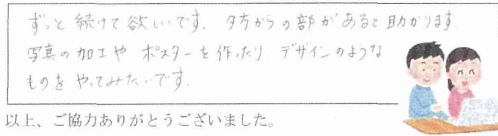 ずっと続けて欲しいです。夕方からの部があると助かります。
写真の加工やポスターを作ったりデザインのような
ものをやってみたいです。
以上、ご協力ありがとうございました。